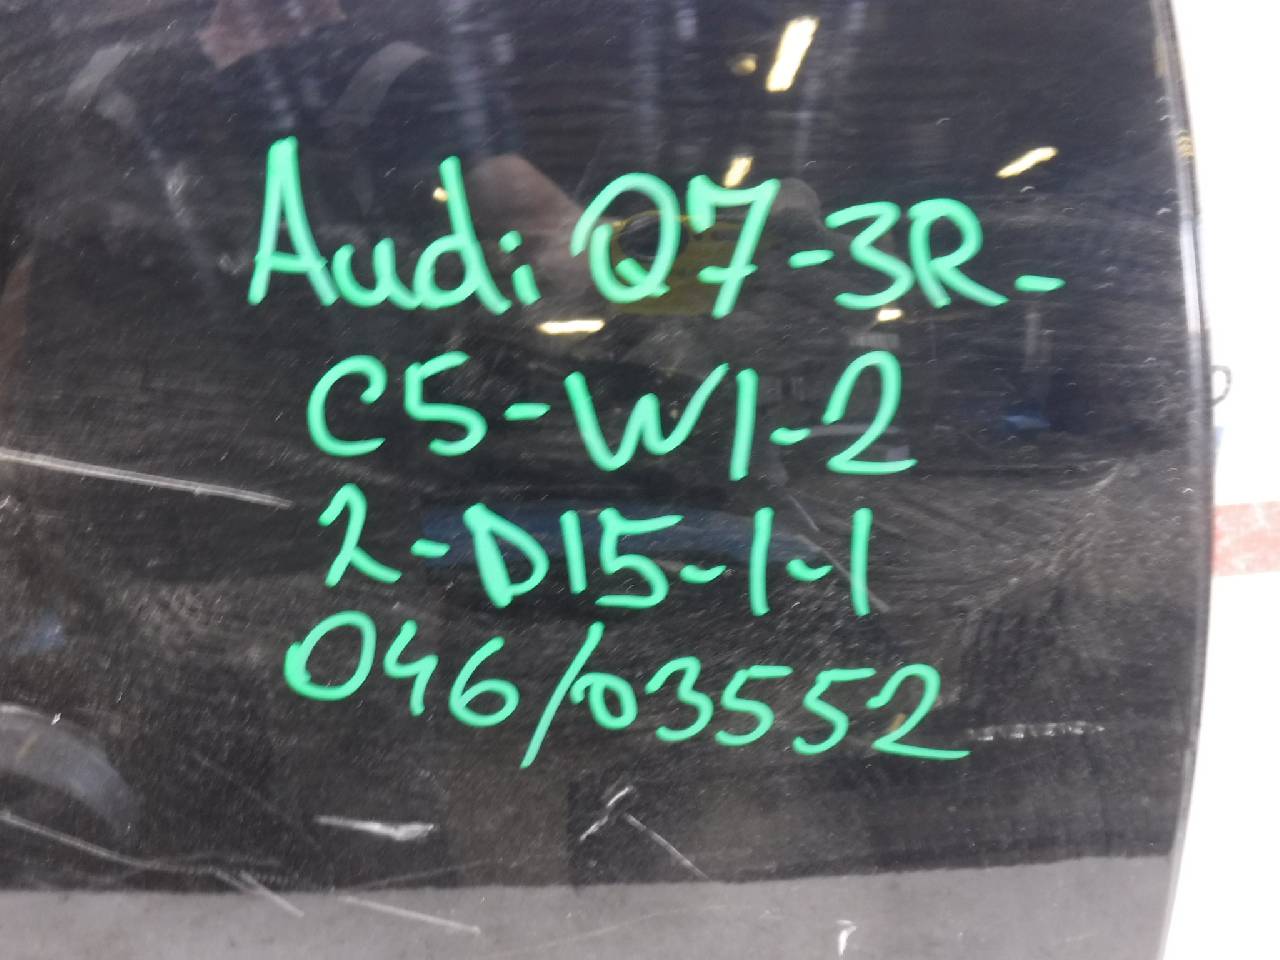 Audi Q7-3R-
C5-W1-2
2-D15-1-1
046/03552